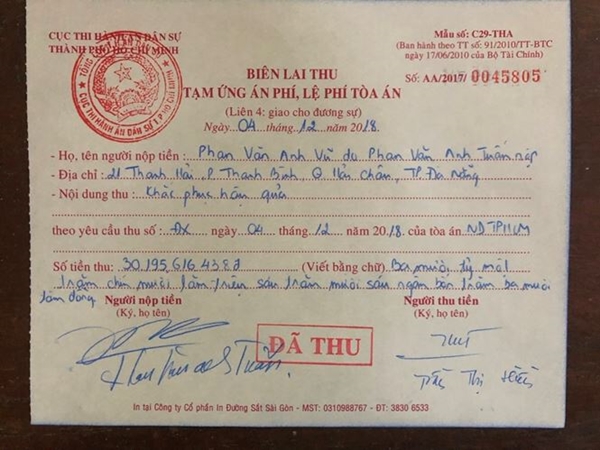 CỤC THI HÀNH ÁN DÂN SỰ
THÀNH PHỐ HỒ CHÍ MINH
Mẫu số: C29-THA
(Ban hành theo TT số: 91/2010/TT-BTC
ngày 17/06/2010 của Bộ Tài Chính)
Số: AA/2017/ 0045805
BIÊN LAI THU
TẠM ỨNG ÁN PHÍ, LỆ PHÍ TÒA ÁN
(Liên 4: giao cho đương sự)
Ngày 04 tháng 12 năm 2018.
- Họ, tên người nộp tiền : Phan Văn Anh Vũ do Phan Văn Anh Tuấn nộp
- Địa chỉ : 21 Thanh Hải, P. Thanh Bình Q Hải Châu, TP Đà Nẵng
- Nội dung thu : Khắc phục hậu quả
theo yêu cầu thu số : ĐX ngày 04 tháng 12 năm 2018 của tòa án NDTPHCM
Số tiền thu: 30.195.616.438đ (Viết bằng chữ) Ba mươi tỷ một
trăm chín mươi lăm triệu sáu trăm mười sáu ngàn bốn trăm ba mươi
tám đồng
Người nộp tiền
(Ký, họ tên)
Người thu tiền
(Ký, họ tên)
ĐÃ THU
In tại Công ty Cổ phần In Đường Sắt Sài Gòn - MST: 0310988767 - ĐT: 3830 6533